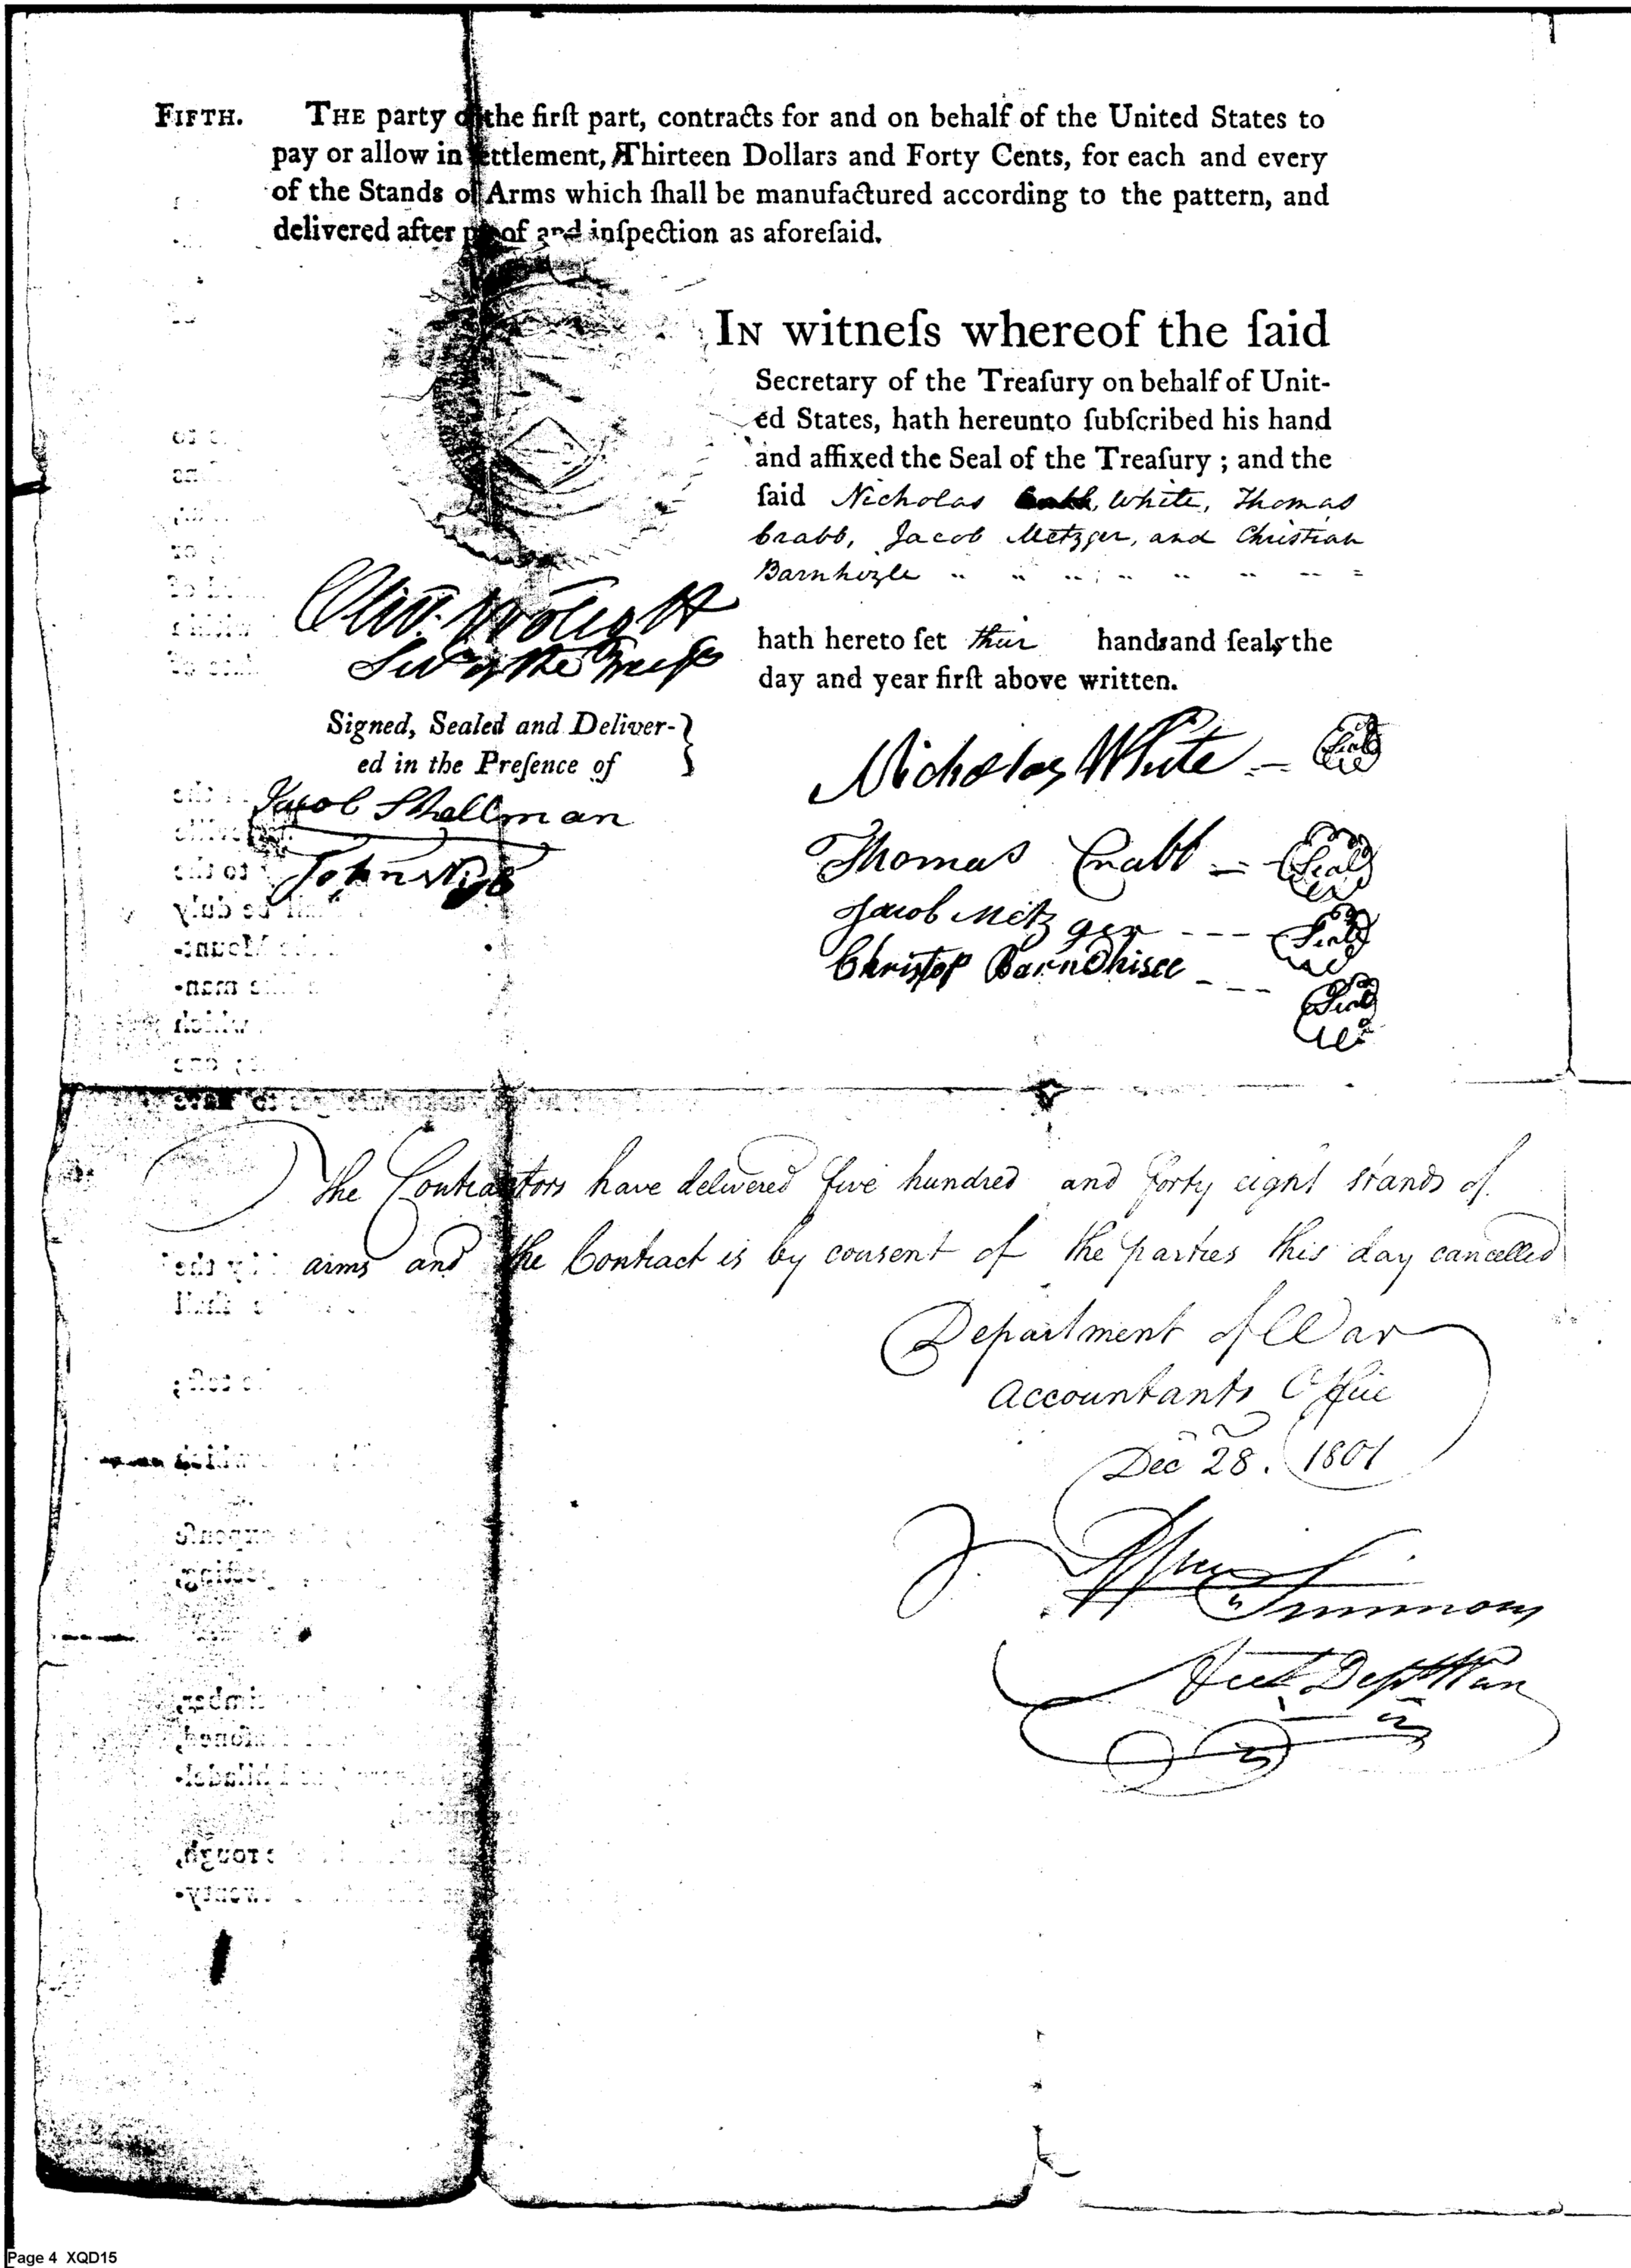 FIFTH. THE party of the firſt part, contracts for and on behalf of the United States to
pay or allow in ſettlement, Thirteen Dollars and Forty Cents, for each and every
of the Stands of Arms which ſhall be manufactured according to the pattern, and
delivered after proof and inſpection as aforeſaid.
IN witneſs whereof the ſaid
Secretary of the Treaſury on behalf of Unit-
ed States, hath hereunto ſubſcribed his hand
and affixed the Seal of the Treaſury ; and the
ſaid Nicholas White, Thomas
Crabb, Jacob Metzger, and Christian
Barnhizle
Oliv. Wolcott
Secy of the Treasy
hath hereto ſet their hands and ſeals, the
day and year firſt above written.
Signed, Sealed and Deliver-
ed in the Preſence of
Jacob Shellman
John
Nicholas White Seal
Thomas Crabb Seal
Jacob Metzger Seal
Christop Barndhisel Seal
The Contractors have delivered five hundred and forty eight stands of
arms and the Contract is by consent of the parties this day cancelled
Department of War
Accountants Office
Dec 28. 1801
Simmons
Acct Dept War
Page 4 XQD15